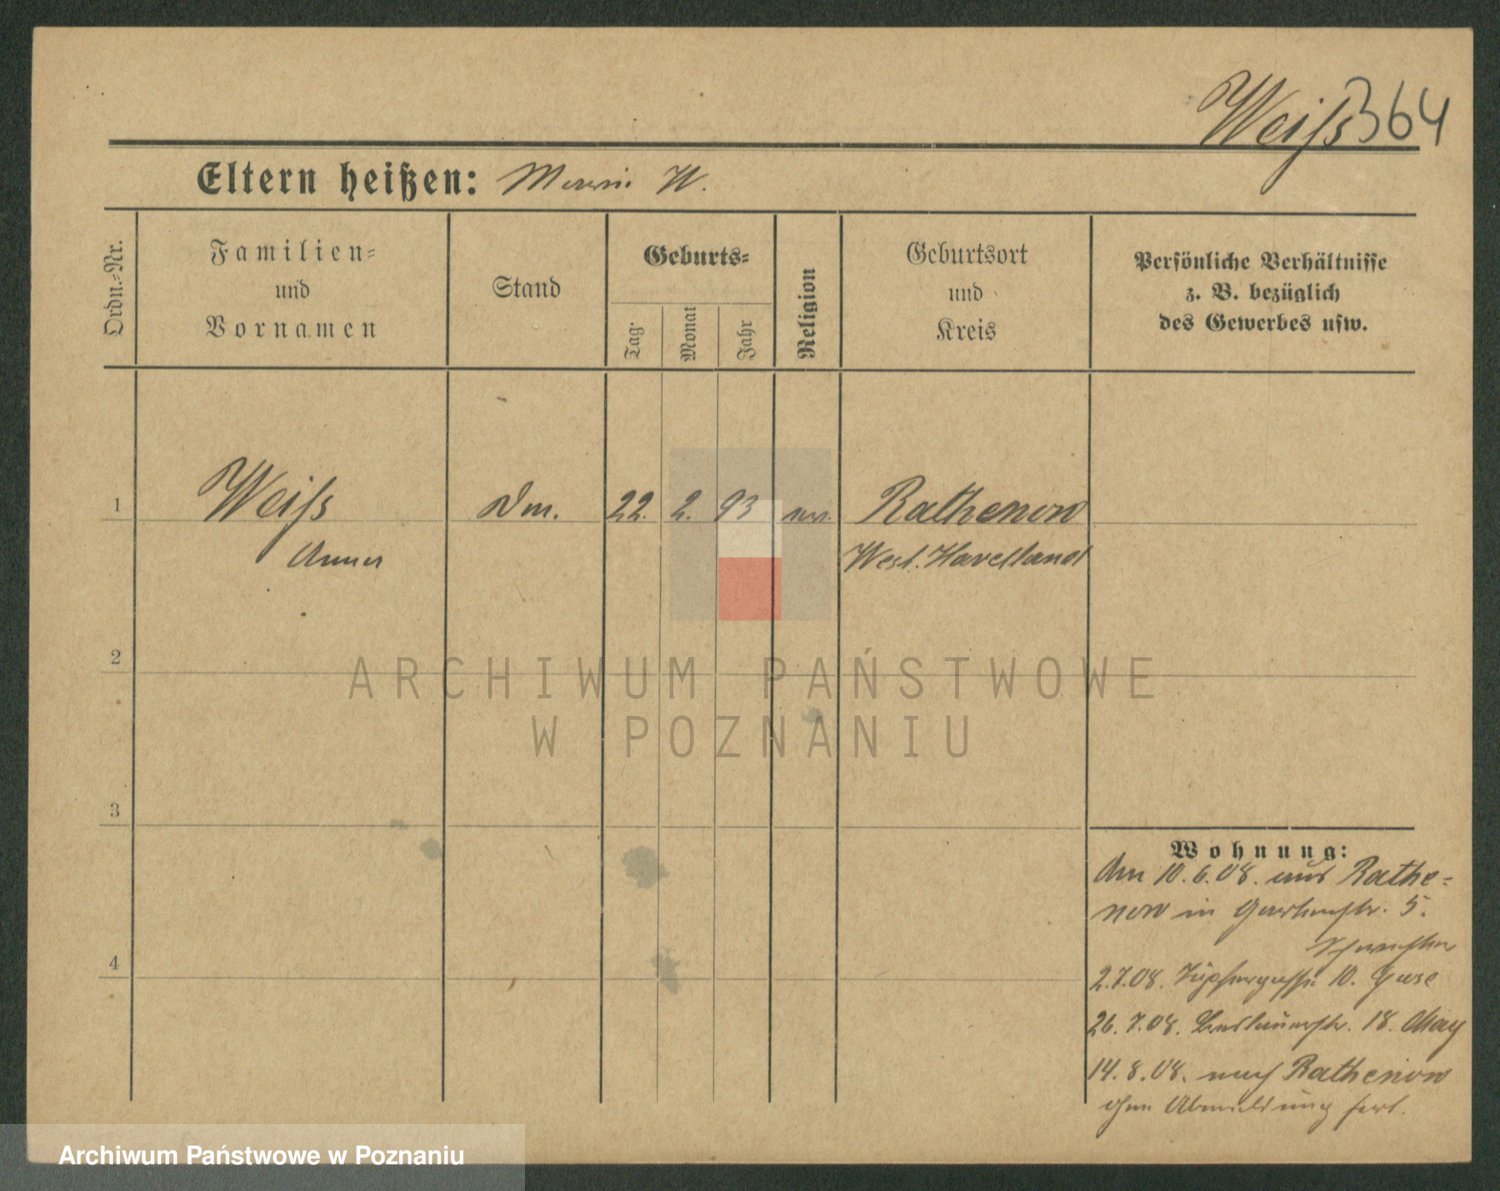 Weiſs 364
Eltern heißen: W.
Ordn.-Nr.
Familien-
und
Vornamen
Stand
Geburts-
Tag:
Monat
Jahr
Religion
Geburtsort
und
Kreis
Persönliche Verhältnisse
z. B. bezüglich
des Gewerbes usw.
1 Weiſs 22. 2. 93 Rathenow
Anna West. Havelland
2
3
4
Wohnung:
Am 10.6.08. aus Rathe-
now in Gartenstr. 5.
2.7.08. 10.
26.7.08. 18. May
14.8.08. nach Rathenow
ohne Abmeldung fort.
ARCHIWUM PAŃSTWOWE
W POZNANIU
Archiwum Państwowe w Poznaniu